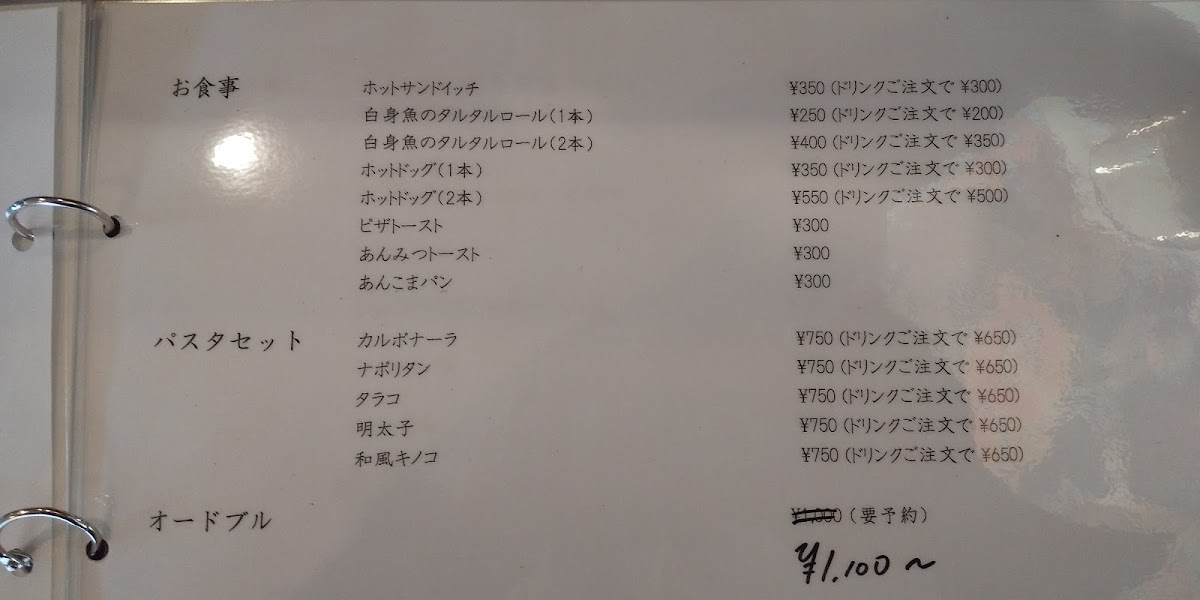 お食事 ホットサンドイッチ ¥350 (ドリンクご注文で ¥300)
白身魚のタルタルロール(1本) ¥250 (ドリンクご注文で ¥200)
白身魚のタルタルロール(2本) ¥400 (ドリンクご注文で ¥350)
ホットドッグ(1本) ¥350 (ドリンクご注文で ¥300)
ホットドッグ(2本) ¥550 (ドリンクご注文で ¥500)
ピザトースト ¥300
あんみつトースト ¥300
あんこまパン ¥300
パスタセット カルボナーラ ¥750 (ドリンクご注文で ¥650)
ナポリタン ¥750 (ドリンクご注文で ¥650)
タラコ ¥750 (ドリンクご注文で ¥650)
明太子 ¥750 (ドリンクご注文で ¥650)
和風キノコ ¥750 (ドリンクご注文で ¥650)
オードブル (要予約)
¥1,100～